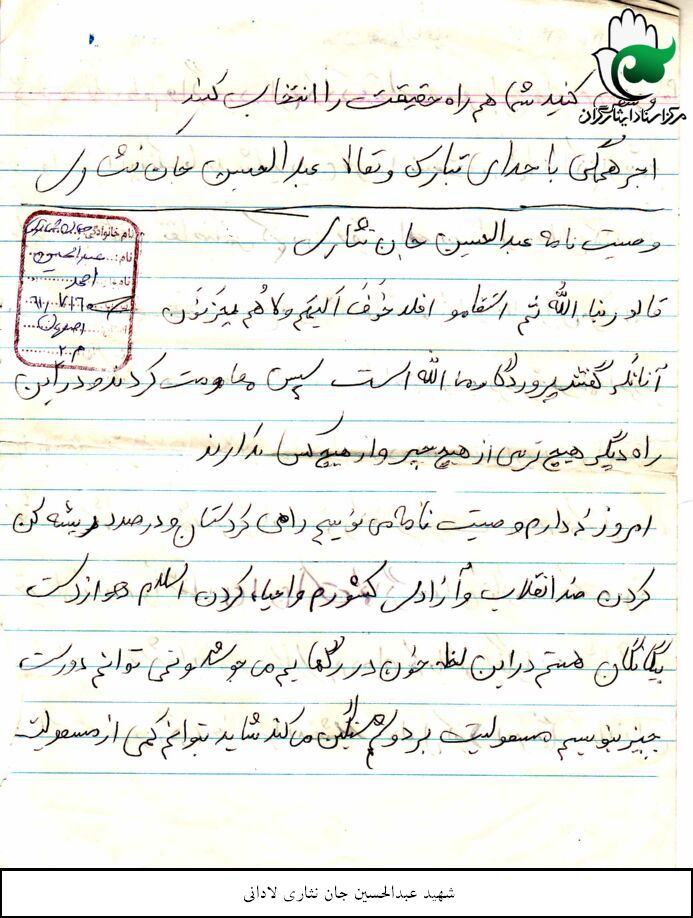 مرکز اسناد ایثارگران
کنید شما هم راه حقیقت را انتخاب کنید
اجر همگی با خدای تبارک و تعالا عبدالحسین جان نثاری
وصیت نامه عبدالحسین جان نثاری
نام خانوادگی:
نام: عبدالحسین
احمد
اصفهان
قالو ربنا الله ثم استقامو افلا خوف الیهم ولا هم یحزنون
آنانکه گفتند پروردگار ما الله است سپس مقاومت کردند و در این
راه دیگر هیچ ترسی از هیچ چیز و از هیچ کس ندارند
امروز که دارم وصیت نامه می نویسم راهی کردستان و درصدد ریشه کن
کردن ضد انقلاب و آزادی کشورم و احیاء کردن اسلام از دست
بیگانگان هستم در این لحظه خون در رگهایم می جوشد و نمی توانم دورست
چیز بنویسم مسعولیت بر دوشم سنگین می کند شاید بتوانم کمی از مسعولیت
شهید عبدالحسین جان نثاری لادانی